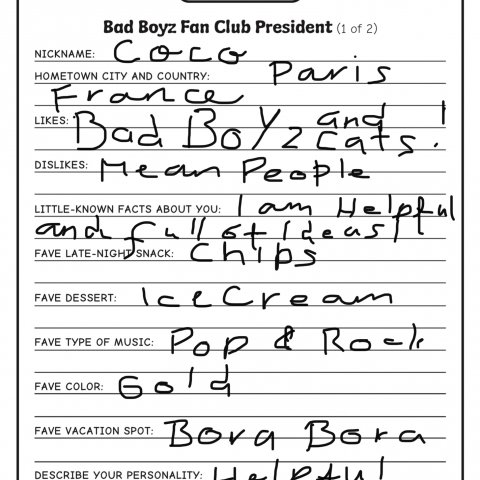 Bad Boyz Fan Club President (1 of 2)
NICKNAME: Coco
HOMETOWN CITY AND COUNTRY: Paris
France
LIKES: Bad Boyz and cats.
DISLIKES: Mean People
LITTLE-KNOWN FACTS ABOUT YOU: I am Helpful
and full of Ideas!!
FAVE LATE-NIGHT SNACK: Chips
FAVE DESSERT: Ice Cream
FAVE TYPE OF MUSIC: Pop & Rock
FAVE COLOR: Gold
FAVE VACATION SPOT: Bora Bora
DESCRIBE YOUR PERSONALITY: Helpful